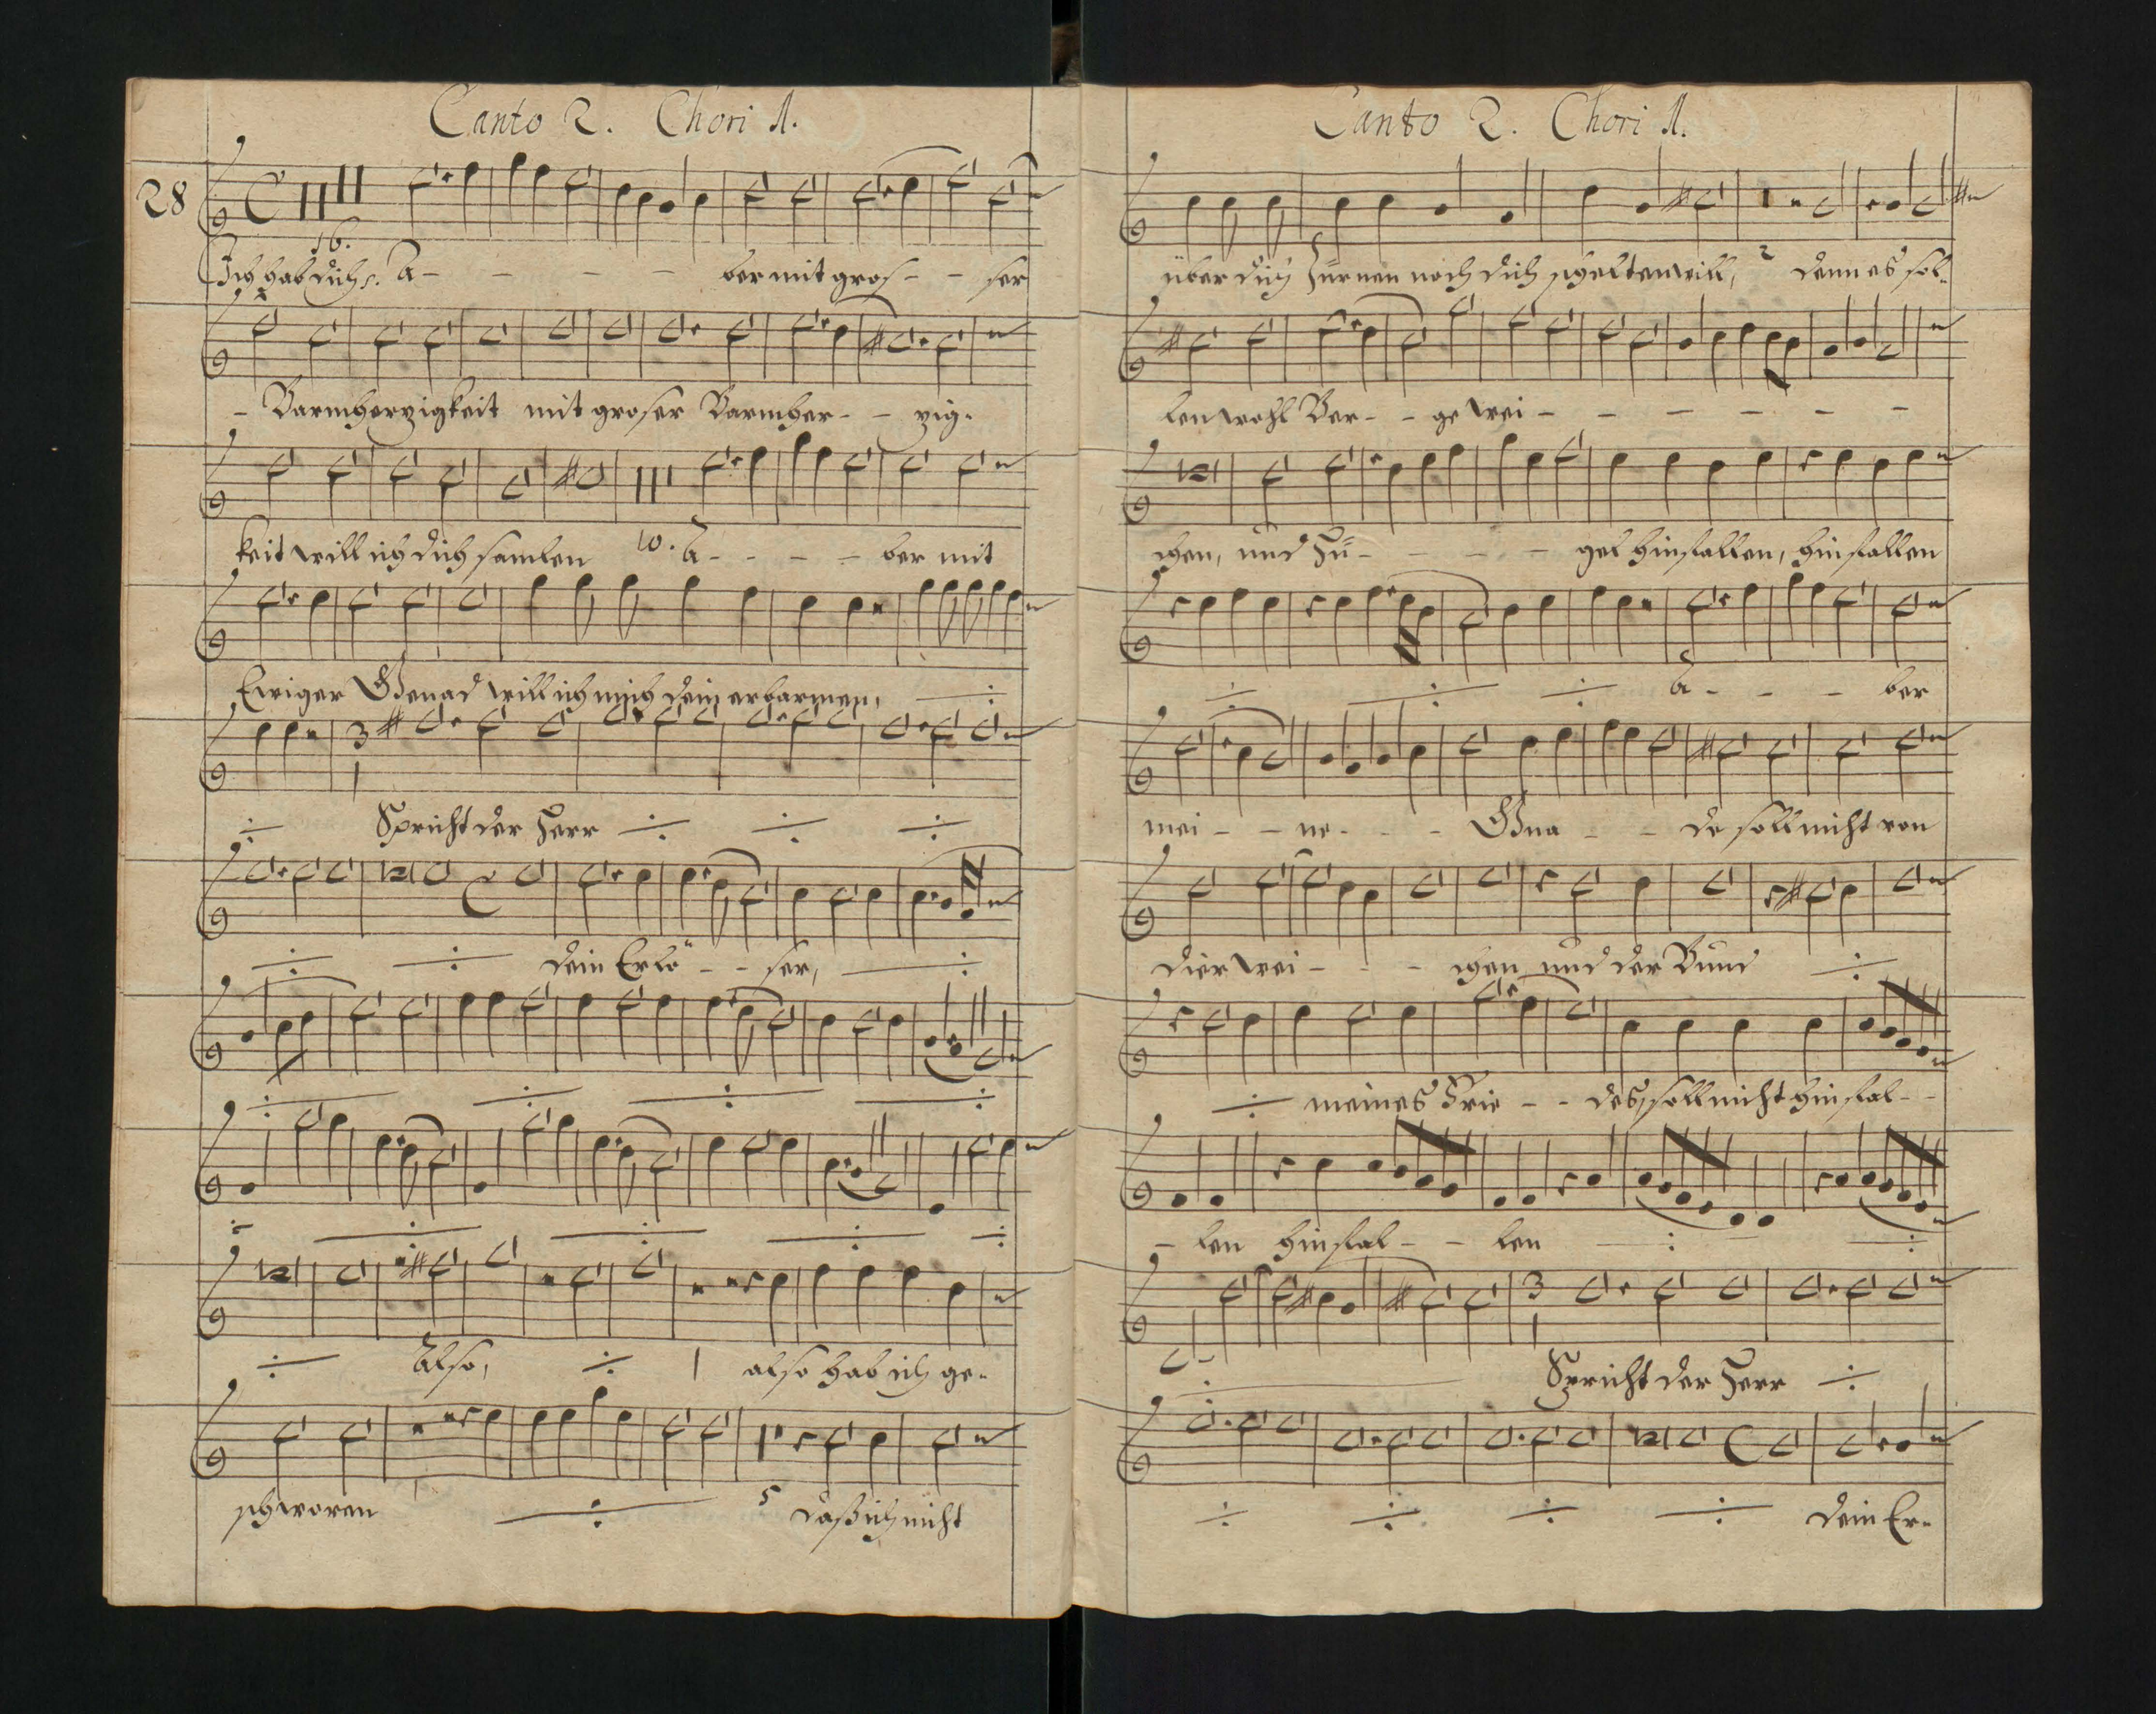 Canto 2. Chori 1.
28
16.
Ich hab dich A - - - - - ber mit gros - - ser
- Barmherzigkeit mit groser Barmher - - zig-
keit will ich dich samlen 10. A - - - - ber mit
Ewiger Genad will ich mich dein erbarmen,
3
1
Spricht der Herr
dein Erlö - - ser,
Also, also hab ich ge-
schworen 5 daß ich nicht
Canto 2. Chori 1.
über dich Zürnen noch dich schelten will, 2 denn es sol-
len wohl Ber - - ge wei - - - - - -
chen, und Hü - - - - gel hinfallen, hinfallen
A - - - ber
mei - - ne - - - Gna - - de soll nicht von
dier wei - - - chen und der Bund
meines Frie - - des, soll nicht hinfal - -
- len hinfal - - len
3
1
Spricht der Herr
dein Er-